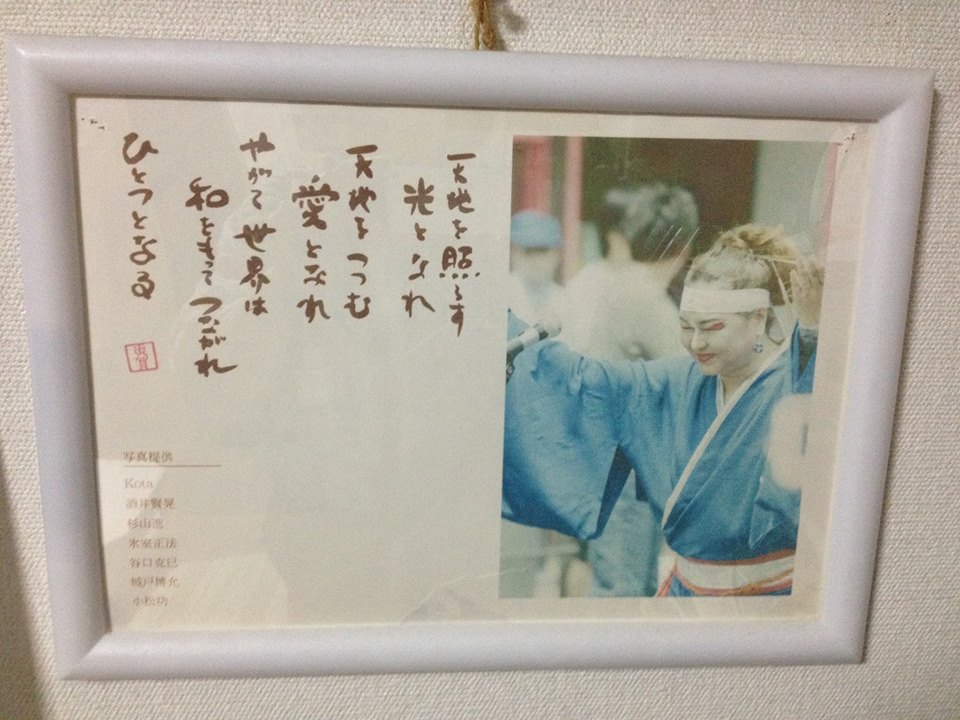 天地を照らす
光となれ
天地をつつむ
愛となれ
やがて世界は
和をもってつながれ
ひとつとなる
写真提供
Kota
酒井賢晃
杉山進
氷室正法
谷口克巳
城戸博允
小松功